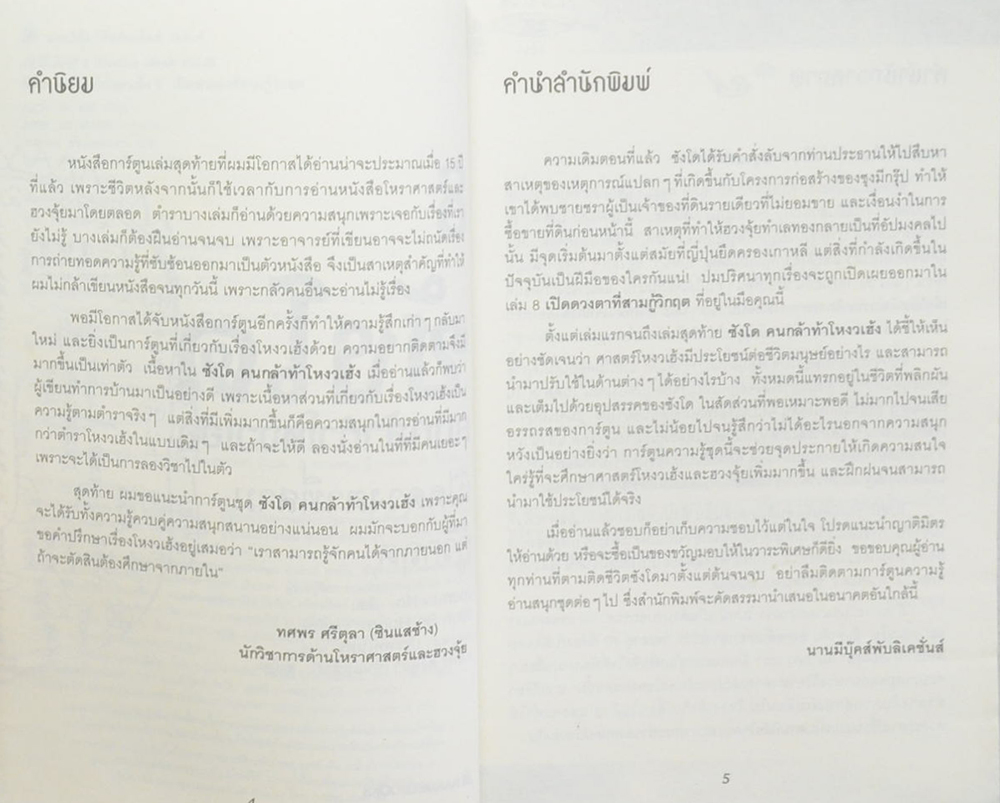 คำนิยม
หนังสือการ์ตูนเล่มสุดท้ายที่ผมมีโอกาสได้อ่านน่าจะประมาณเมื่อ 15 ปี
ที่แล้ว เพราะชีวิตหลังจากนั้นก็ใช้เวลากับการอ่านหนังสือโหราศาสตร์และ
ฮวงจุ้ยมาโดยตลอด ตำราบางเล่มก็อ่านด้วยความสนุกเพราะเจอกับเรื่องที่เรา
ยังไม่รู้ บางเล่มก็ต้องฝืนอ่านจนจบ เพราะอาจารย์ที่เขียนอาจจะไม่ถนัดเรื่อง
การถ่ายทอดความรู้ที่ซับซ้อนออกมาเป็นตัวหนังสือ จึงเป็นสาเหตุสำคัญที่ทำให้
ผมไม่กล้าเขียนหนังสือจนทุกวันนี้ เพราะกลัวคนอื่นจะอ่านไม่รู้เรื่อง
พอมีโอกาสได้จับหนังสือการ์ตูนอีกครั้งก็ทำให้ความรู้สึกเก่าๆ กลับมา
ใหม่ และยิ่งเป็นการ์ตูนที่เกี่ยวกับเรื่องโหงวเฮ้งด้วย ความอยากติดตามจึงมี
มากขึ้นเป็นเท่าตัว เนื้อหาใน ซังโด คนกล้าท้าโหงวเฮ้ง เมื่ออ่านแล้วก็พบว่า
ผู้เขียนทำการบ้านมาเป็นอย่างดี เพราะเนื้อหาส่วนที่เกี่ยวกับเรื่องโหงวเฮ้งเป็น
ความรู้ตามตำราจริงๆ แต่สิ่งที่มีเพิ่มมากขึ้นก็คือความสนุกในการอ่านที่มีมาก
กว่าตำราโหงวเฮ้งในแบบเดิมๆ และถ้าจะให้ดี ลองนั่งอ่านในที่ที่มีคนเยอะๆ
เพราะจะได้เป็นการลองวิชาไปในตัว
สุดท้าย ผมขอแนะนำการ์ตูนชุด ซังโด คนกล้าท้าโหงวเฮ้ง เพราะคุณ
จะได้รับทั้งความรู้ควบคู่ความสนุกสนานอย่างแน่นอน ผมมักจะบอกกับผู้ที่มา
ขอคำปรึกษาเรื่องโหงวเฮ้งอยู่เสมอว่า "เราสามารถรู้จักคนได้จากภายนอก แต่
ถ้าจะตัดสินต้องศึกษาจากภายใน"
ทศพร ศรีตุลา (ซินแสช้าง)
นักวิชาการด้านโหราศาสตร์และฮวงจุ้ย
คำนำสำนักพิมพ์
ความเดิมตอนที่แล้ว ซังโดได้รับคำสั่งลับจากท่านประธานให้ไปสืบหา
สาเหตุของเหตุการณ์แปลกๆ ที่เกิดขึ้นกับโครงการก่อสร้างของซุงมีกรุ๊ป ทำให้
เขาได้พบชายชราผู้เป็นเจ้าของที่ดินรายเดียวที่ไม่ยอมขาย และเงื่อนงำในการ
ซื้อขายที่ดินก่อนหน้านี้ สาเหตุที่ทำให้ฮวงจุ้ยทำเลทองกลายเป็นที่อัปมงคลไป
นั้น มีจุดเริ่มต้นมาตั้งแต่สมัยที่ญี่ปุ่นยึดครองเกาหลี แต่สิ่งที่กำลังเกิดขึ้นใน
ปัจจุบันเป็นฝีมือของใครกันแน่! ปมปริศนาทุกเรื่องจะถูกเปิดเผยออกมาใน
เล่ม 8 เปิดดวงตาที่สามกู้วิกฤต ที่อยู่ในมือคุณนี้
ตั้งแต่เล่มแรกจนถึงเล่มสุดท้าย ซังโด คนกล้าท้าโหงวเฮ้ง ได้ชี้ให้เห็น
อย่างชัดเจนว่า ศาสตร์โหงวเฮ้งมีประโยชน์ต่อชีวิตมนุษย์อย่างไร และสามารถ
นำมาปรับใช้ในด้านต่างๆ ได้อย่างไรบ้าง ทั้งหมดนี้แทรกอยู่ในชีวิตที่พลิกผัน
และเต็มไปด้วยอุปสรรคของซังโด ในสัดส่วนที่พอเหมาะพอดี ไม่มากไปจนเสีย
อรรถรสของการ์ตูน และไม่น้อยไปจนรู้สึกว่าไม่ได้อะไรนอกจากความสนุก
หวังเป็นอย่างยิ่งว่า การ์ตูนความรู้ชุดนี้จะช่วยจุดประกายให้เกิดความสนใจ
ใคร่รู้ที่จะศึกษาศาสตร์โหงวเฮ้งและฮวงจุ้ยเพิ่มมากขึ้น และฝึกฝนจนสามารถ
นำมาใช้ประโยชน์ได้จริง
เมื่ออ่านแล้วชอบก็อย่าเก็บความชอบไว้แต่ในใจ โปรดแนะนำญาติมิตร
ให้อ่านด้วย หรือจะซื้อเป็นของขวัญมอบให้ในวาระพิเศษก็ดียิ่ง ขอขอบคุณผู้อ่าน
ทุกท่านที่ตามติดชีวิตซังโดมาตั้งแต่ต้นจนจบ อย่าลืมติดตามการ์ตูนความรู้
อ่านสนุกชุดต่อๆ ไป ซึ่งสำนักพิมพ์จะคัดสรรมานำเสนอในอนาคตอันใกล้นี้
นานมีบุ๊คส์พับลิเคชั่นส์
5